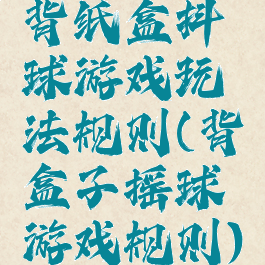 背纸盒抖
球游戏玩
法规则(背
盒子摇球
游戏规则)